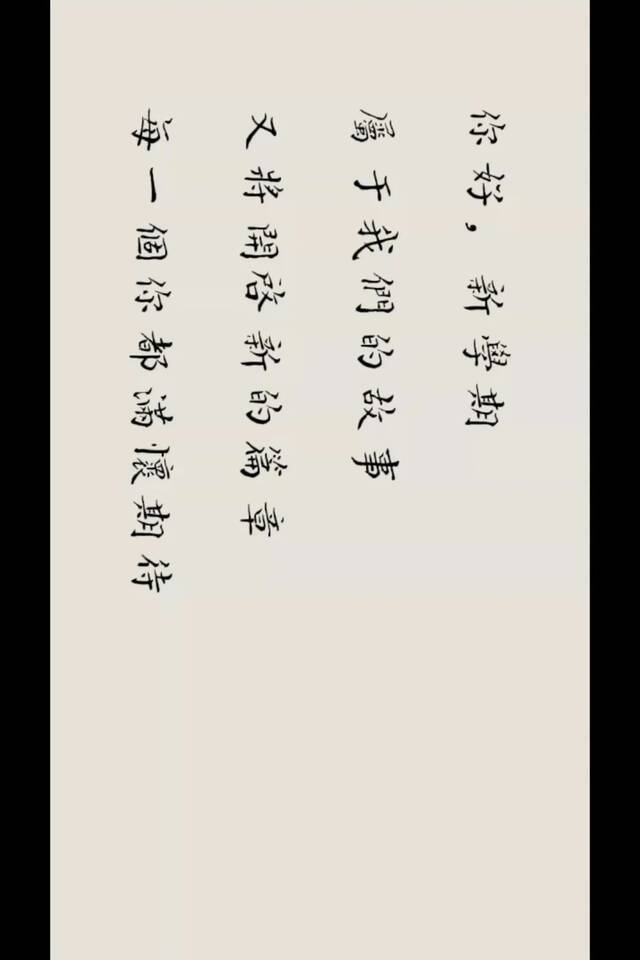 你好，新學期
屬于我們的故事
又將開啟新的篇章
每一個你都滿懷期待